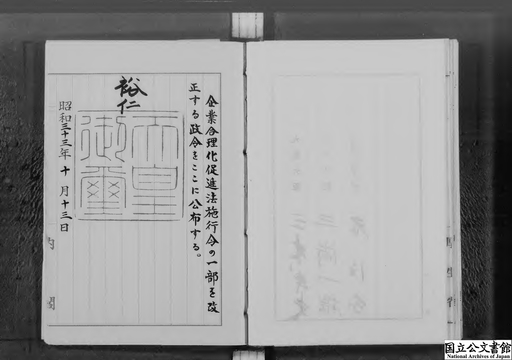 企業合理化促進法施行令の一部を改
正する政令をここに公布する。
裕仁
天皇
御璽
昭和三十三年十月十三日
内閣
国立公文書館
National Archives of Japan